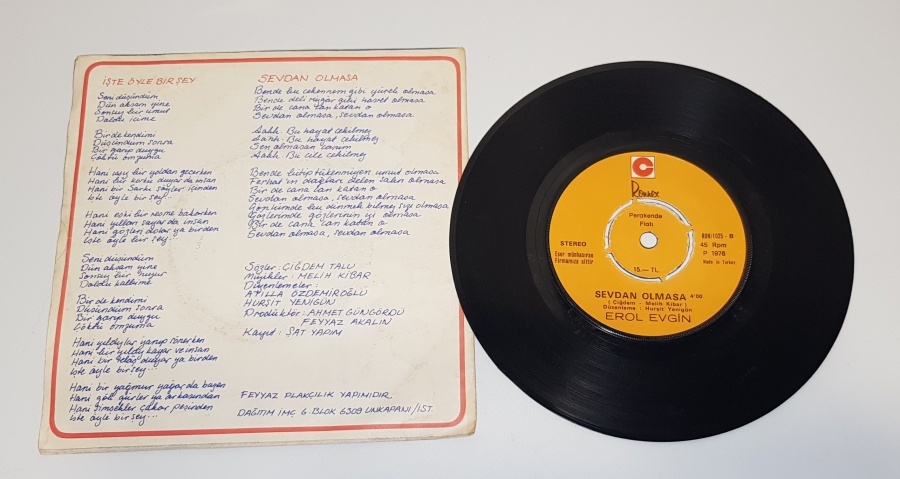 İŞTE ÖYLE BİR ŞEY
Seni düşündüm
Dün akşam yine
Sonsuz bir umut
Doldu içime
Bir de kendimi
Düşündüm sonra
Bir garip duygu
Çöktü omzuma
Hani ıssız bir yoldan geçerken
Hani bir korku duyar da insan
Hani bir şarkı söyler içinden
İşte öyle bir şey...
Hani eski bir resme bakarken
Hani yılları sayar da insan
Hani gözleri dolar ya birden
İşte öyle bir şey...
Seni düşündüm
Dün akşam yine
Sonsuz bir huzur
Doldu kalbime
Bir de kendimi
Düşündüm sonra
Bir garip duygu
Çöktü omzuma
Hani yıldızlar yanıp sönerken
Hani bir yıldız kayar ve insan
Hani bir telaş duyar ya birden
İşte öyle bir şey...
Hani bir yağmur yağar da bazen
Hani gök gürler ya arkasından
Hani şimşekler çakar peşinden
İşte öyle bir şey...
SEVDAN OLMASA
Bende bu cehennem gibi yürek olmasa
Bende deli rüzgar gibi hasret olmasa
Bir de cana can katan o
Sevdan olmasa, sevdan olmasa
Sahh. Bu hayat çekilmez
Sahh. Bu hayat çekilmez
Sen olmasan canım
Sahh. Bu çile çekilmez
Bende bitip tükenmeyen umut olmasa
Ferhat'ın dağları delen sabrı olmasa
Bir de cana can katan o
Sevdan olmasa, sevdan olmasa
Gönlümde bu dinmek bilmez sızı olmasa
Gözlerimde gözlerinin izi olmasa
Bir de cana can katan o
Sevdan olmasa, sevdan olmasa
Sözler: ÇİĞDEM TALU
Müzikler: MELİH KİBAR
Düzenlemeler:
ATİLLA ÖZDEMİROĞLU
HURŞİT YENİGÜN
Prodüktör: AHMET GÜNGÖRDÜ
FEYYAZ AKALIN
Kayıt: ŞAT YAPIM
FEYYAZ PLAKÇILIK YAPIMIDIR
DAĞITIM İMÇ 6. BLOK 6309 UNKAPANI/İST.
Perakende
Fiatı
STEREO
Eser münhasıran
Firmamıza aittir
15.— TL.
RDN/1025 - B
45 Rpm
P 1976
Made in Turkey
SEVDAN OLMASA 4'00
( Çiğdem - Melih Kibar )
Düzenleme : Hurşit Yenigün
EROL EVGİN